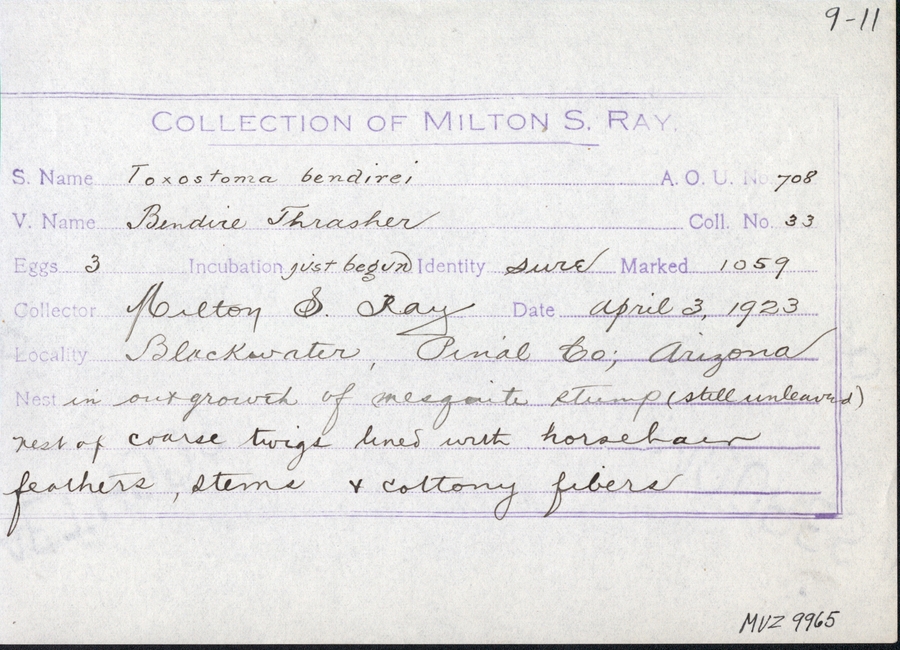 9-11
COLLECTION OF MILTON S. RAY.
S. Name Toxostoma bendirei A. O. U. No. 708
V. Name Bendire Thrasher Coll. No. 33
Eggs 3 Incubation just begun Identity sure Marked 1059
Collector Milton S. Ray Date April 3, 1923
Locality Blackwater, Pinal Co; Arizona
Nest in outgrowth of mesquite stump (still unleaved)
nest of coarse twigs lined with horsehair
feathers, stems & cottony fibers
MVZ 9965